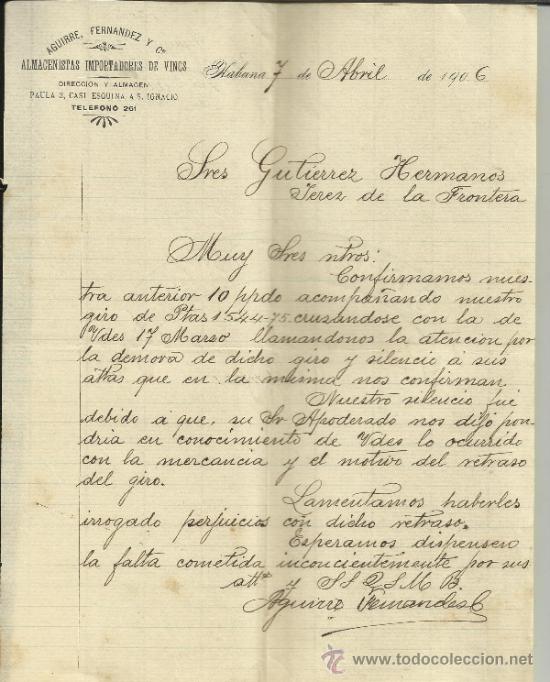 AGUIRRE, FERNANDEZ Y Cª
ALMACENISTAS IMPORTADORES DE VINOS
DIRECCION Y ALMACEN
PAULA 2, CASI ESQUINA A S. IGNACIO
TELEFONO 261
Habana 7 de Abril de 1906
Sres Gutierrez Hermanos
Jerez de la Frontera
Muy Sres ntros:
Confirmamos nues-
tra anterior 10 ppdo acompañando nuestro
giro de Ptas 1544-75 cruzandose con la de
Vdes 17 Marso llamandonos la atencion por
la demora de dicho giro y silencio á sus
attas que en la misma nos confirman
Nuestro silencio fué
debido á que, su Sr Apoderado nos dijo pon-
dria en conocimiento de Vdes lo ocurrido
con la mercancia y el motivo del retraso
del giro.
Lamentamos haberles
irrogado perjuicios con dicho retraso.
Esperamos dispensen
la falta cometida inconcientemente por sus
att y S S Q S M B.
Aguirre Fernandez C
todocoleccion
© www.todocoleccion.net